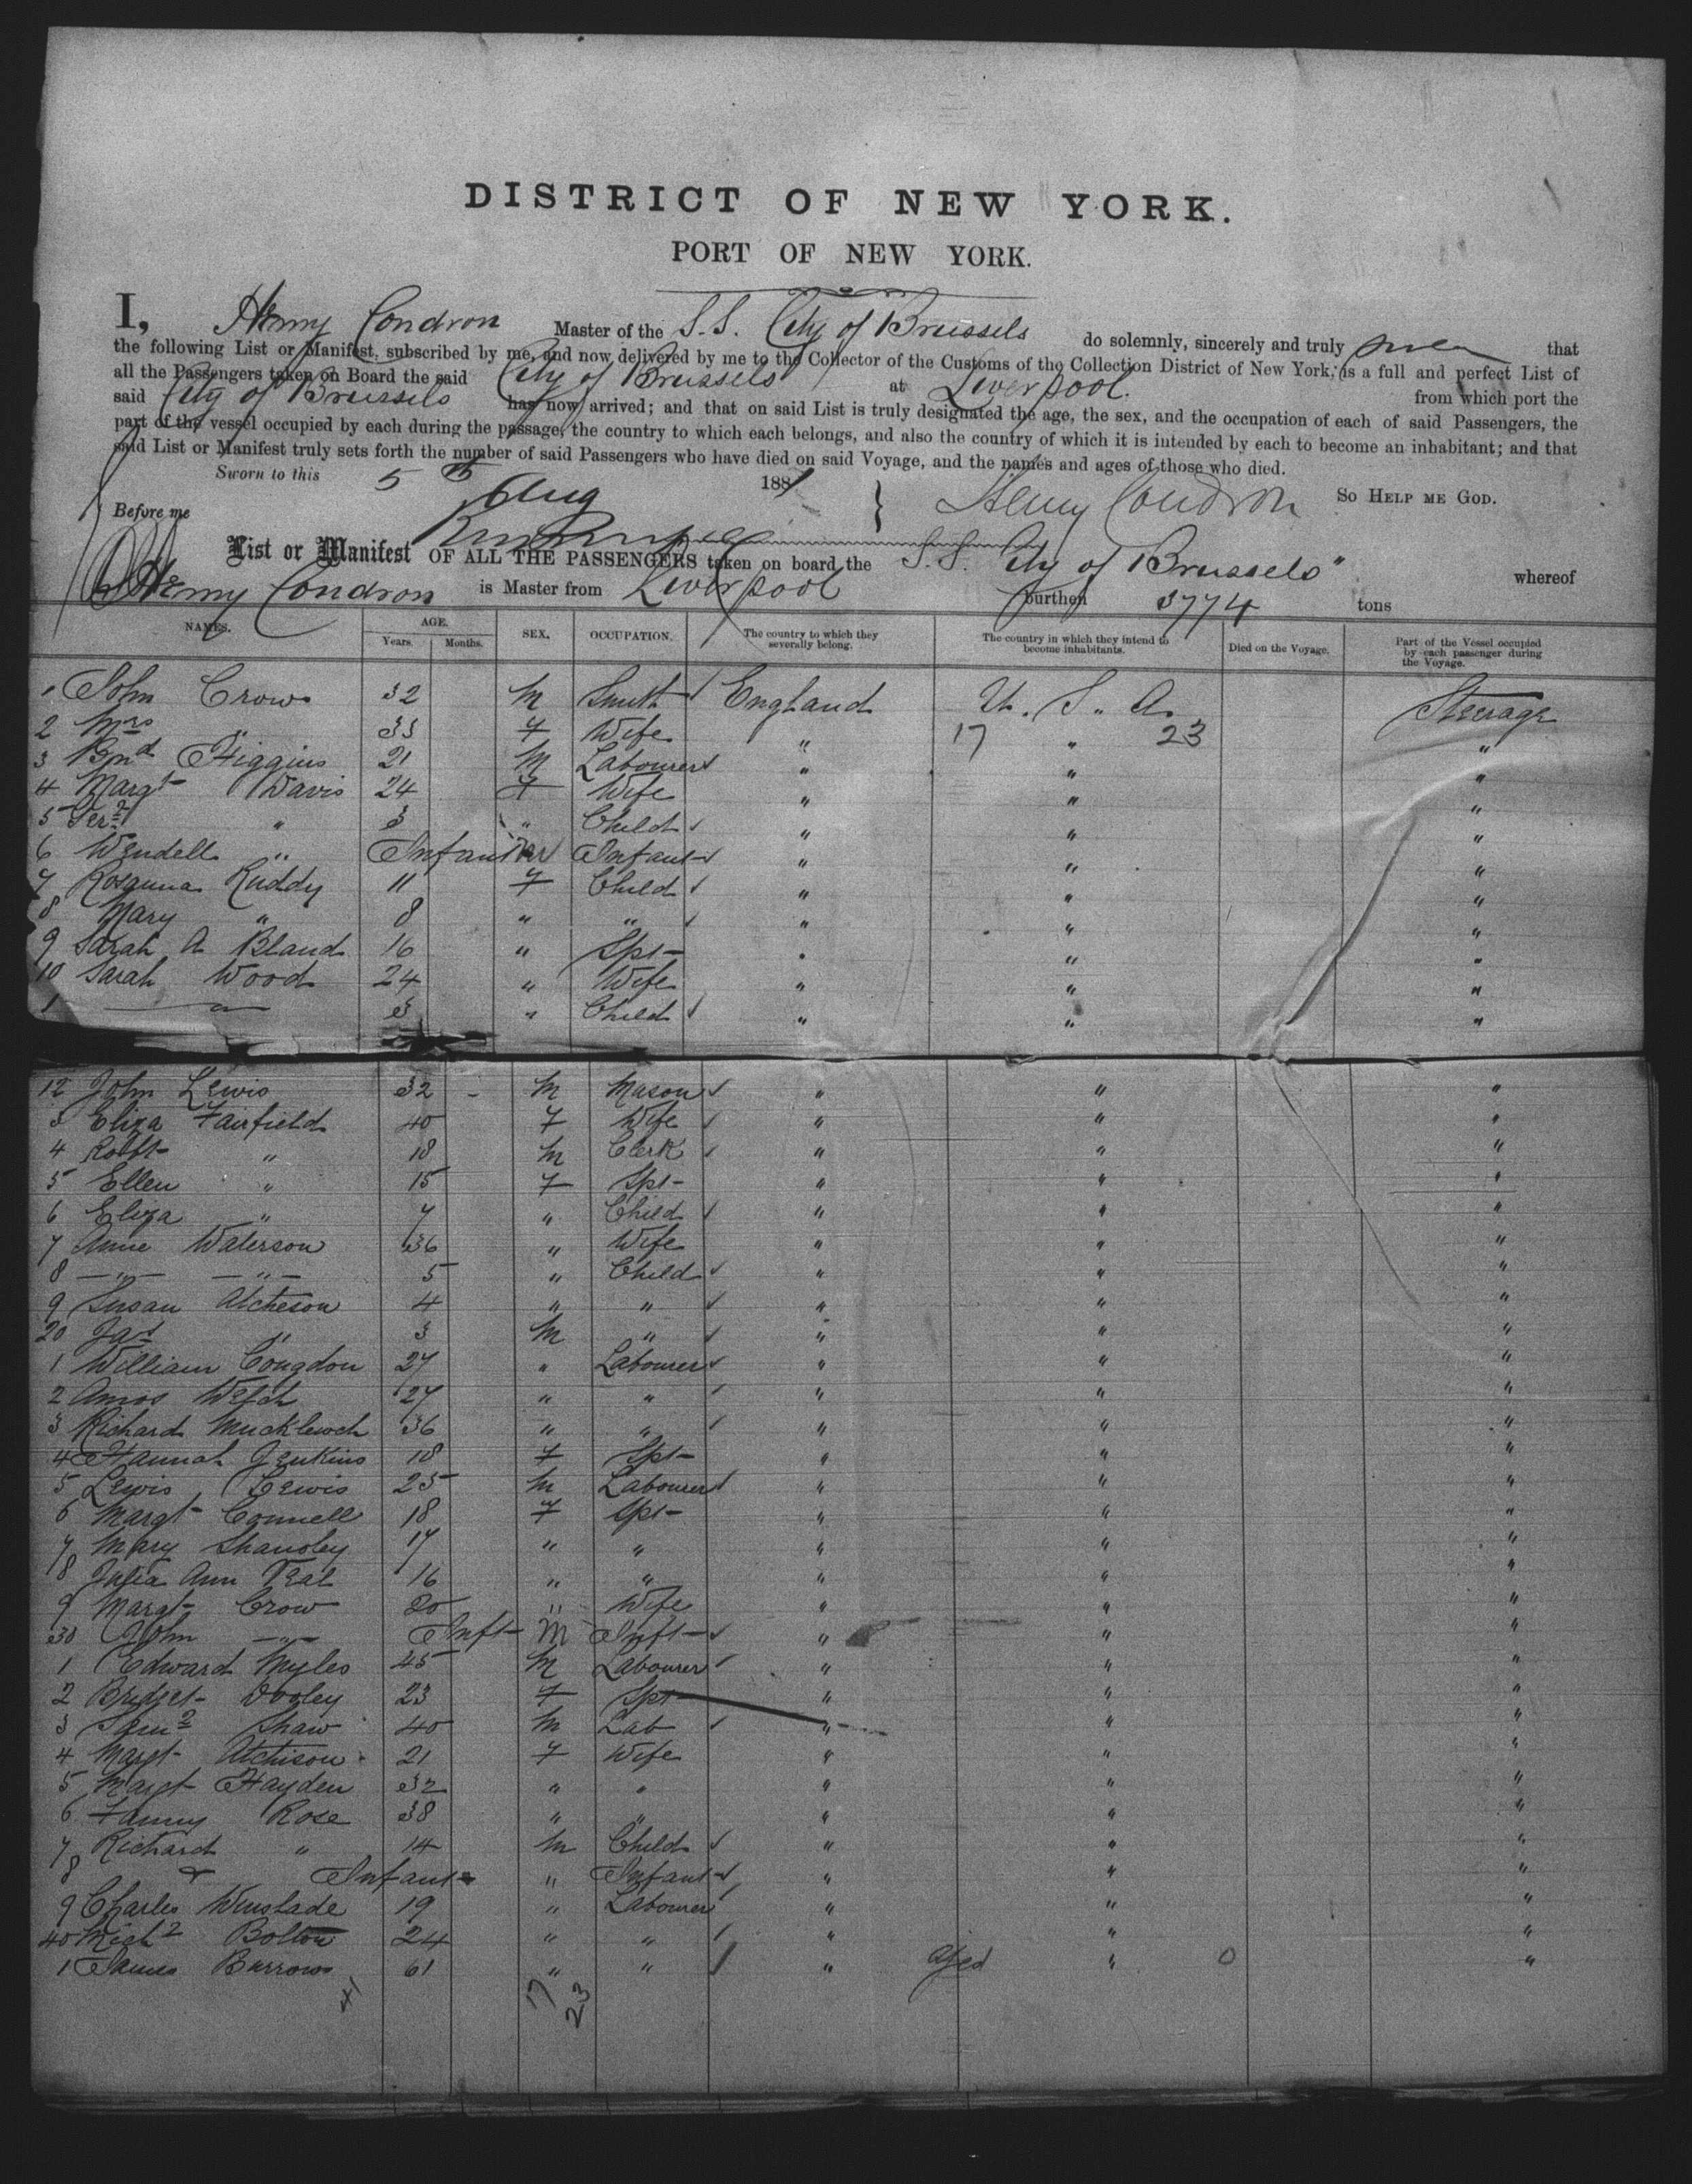 DISTRICT OF NEW YORK.
PORT OF NEW YORK.
I, Henry Condron Master of the S.S. City of Brussels do solemnly, sincerely and truly that
the following List or Manifest, subscribed by me, and now delivered by me to the Collector of the Customs of the Collection District of New York, is a full and perfect List of
all the Passengers taken on Board the said City of Brussels at Liverpool. from which port the
said City of Brussels has now arrived; and that on said List is truly designated the age, the sex, and the occupation of each of said Passengers, the
part of the vessel occupied by each during the passage, the country to which each belongs, and also the country of which it is intended by each to become an inhabitant; and that
said List or Manifest truly sets forth the number of said Passengers who have died on said Voyage, and the names and ages of those who died.
Sworn to this 5th Aug 1881 } Henry Condron SO HELP ME GOD.
Before me
List or Manifest OF ALL THE PASSENGERS taken on board the S.S. City of Brussels" whereof
Henry Condron is Master from Liverpool burthen 3774 tons
NAMES. AGE. Years. Months. SEX. OCCUPATION. The country to which they severally belong. The country in which they intend to become inhabitants. Died on the Voyage. Part of the Vessel occupied by each passenger during the Voyage.
1 John Crow 32 M Smith England U. S. A. Steerage
2 Mrs " 33 F Wife " 17 " 23 "
3 Bnd Higgins 21 M Labourer " " "
4 Margt Davis 24 F Wife " " "
5 " 3 " Child " " "
6 Wendell " Infant M Infant " " "
7 Rosanna Ruddy 11 F Child " " "
8 Mary " 8 " " " " "
9 Sarah A Bland 16 " Spr " " "
10 Sarah Wood 24 " Wife " " "
1 — " — 3 " Child " " "
12 John Lewis 32 - M Mason " " "
3 Eliza Fairfield 40 F Wife " " "
4 Robt " 18 M Clerk " " "
5 Ellen " 15 F Spr " " "
6 Eliza " 7 " Child " " "
7 Anne Waterson 36 " Wife " " "
8 — " — — " — 5 " Child " " "
9 Susan Atcheson 4 " " " " "
20 Jas " 3 M " " " "
1 William Congdon 27 " Labourer " " "
2 Amos Welch 27 " " " " "
3 Richard Mucklewch 36 " " " " "
4 Hannah Jenkins 18 F Spr " " "
5 Lewis Lewis 25 M Labourer " " "
6 Margt Connell 18 F Spr " " "
7 Mary Shanoley 17 " " " " "
8 Julia Ann Teal 16 " " " " "
9 Margt Crow 20 " Wife " " "
30 John — " — Inft M Inft " " "
1 Edward Myles 45 M Labourer " " "
2 Bridget Dooley 23 F Spr " " "
3 Saml Shaw 40 M Lab " " "
4 Margt Atchison 21 F Wife " " "
5 Margt Hayden 32 " " " " "
6 Fanny Rose 38 " " " " "
7 Richard " 14 M Child " " "
8 " Infant " Infant " " "
9 Charles Winslade 19 " Labourer " " "
40 Michl Bolton 24 " " " " "
1 James Burrows 61 " " " aged " 0 "
41 17 23